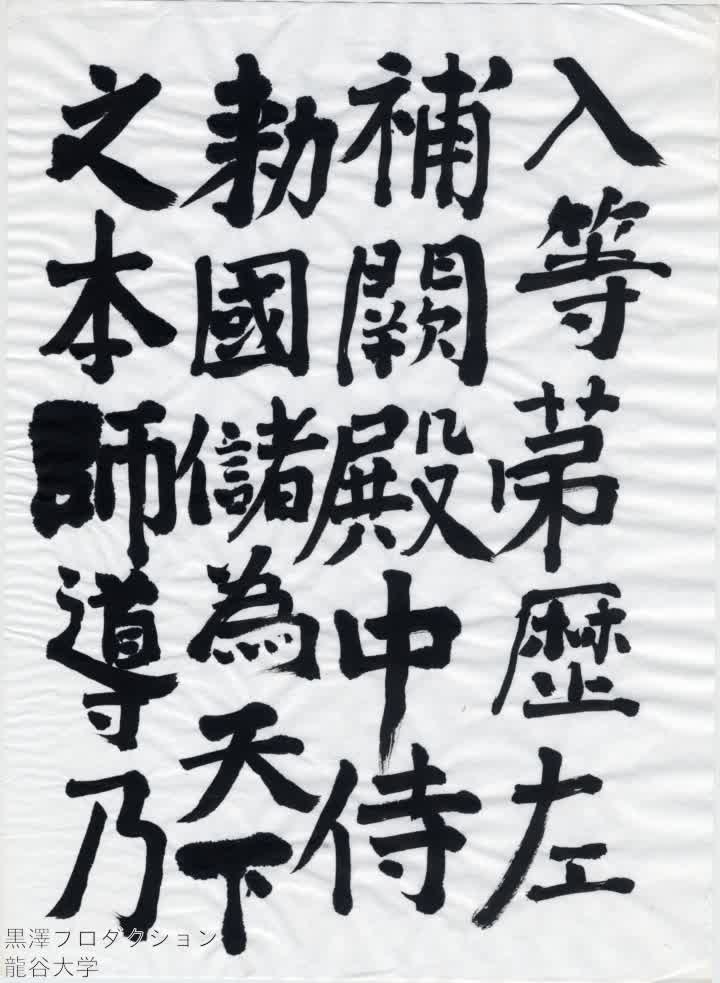 入等苐歴左
補闕殿中侍
勅國儲為天下
之本師導乃
黒澤プロダクション
龍谷大学